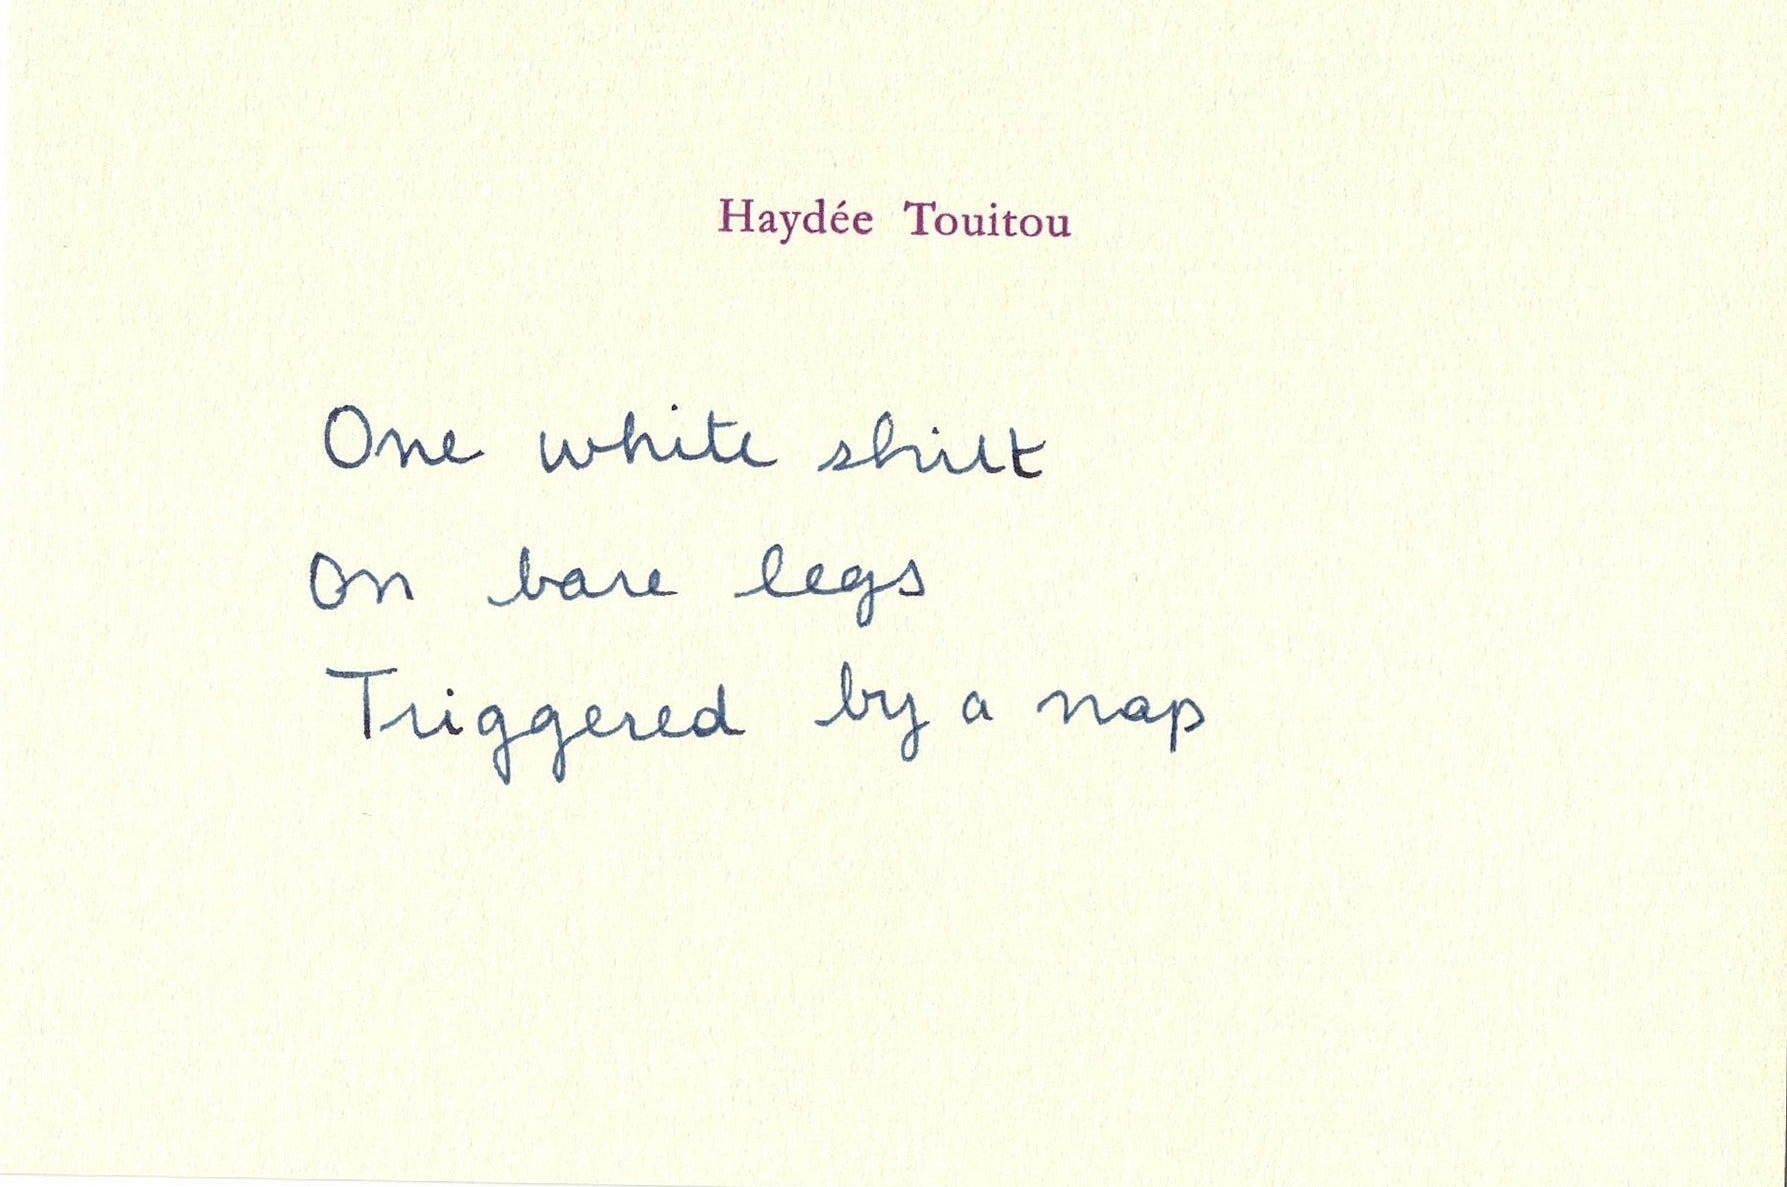 Haydée Touitou
One white shirt
On bare legs
Triggered by a nap